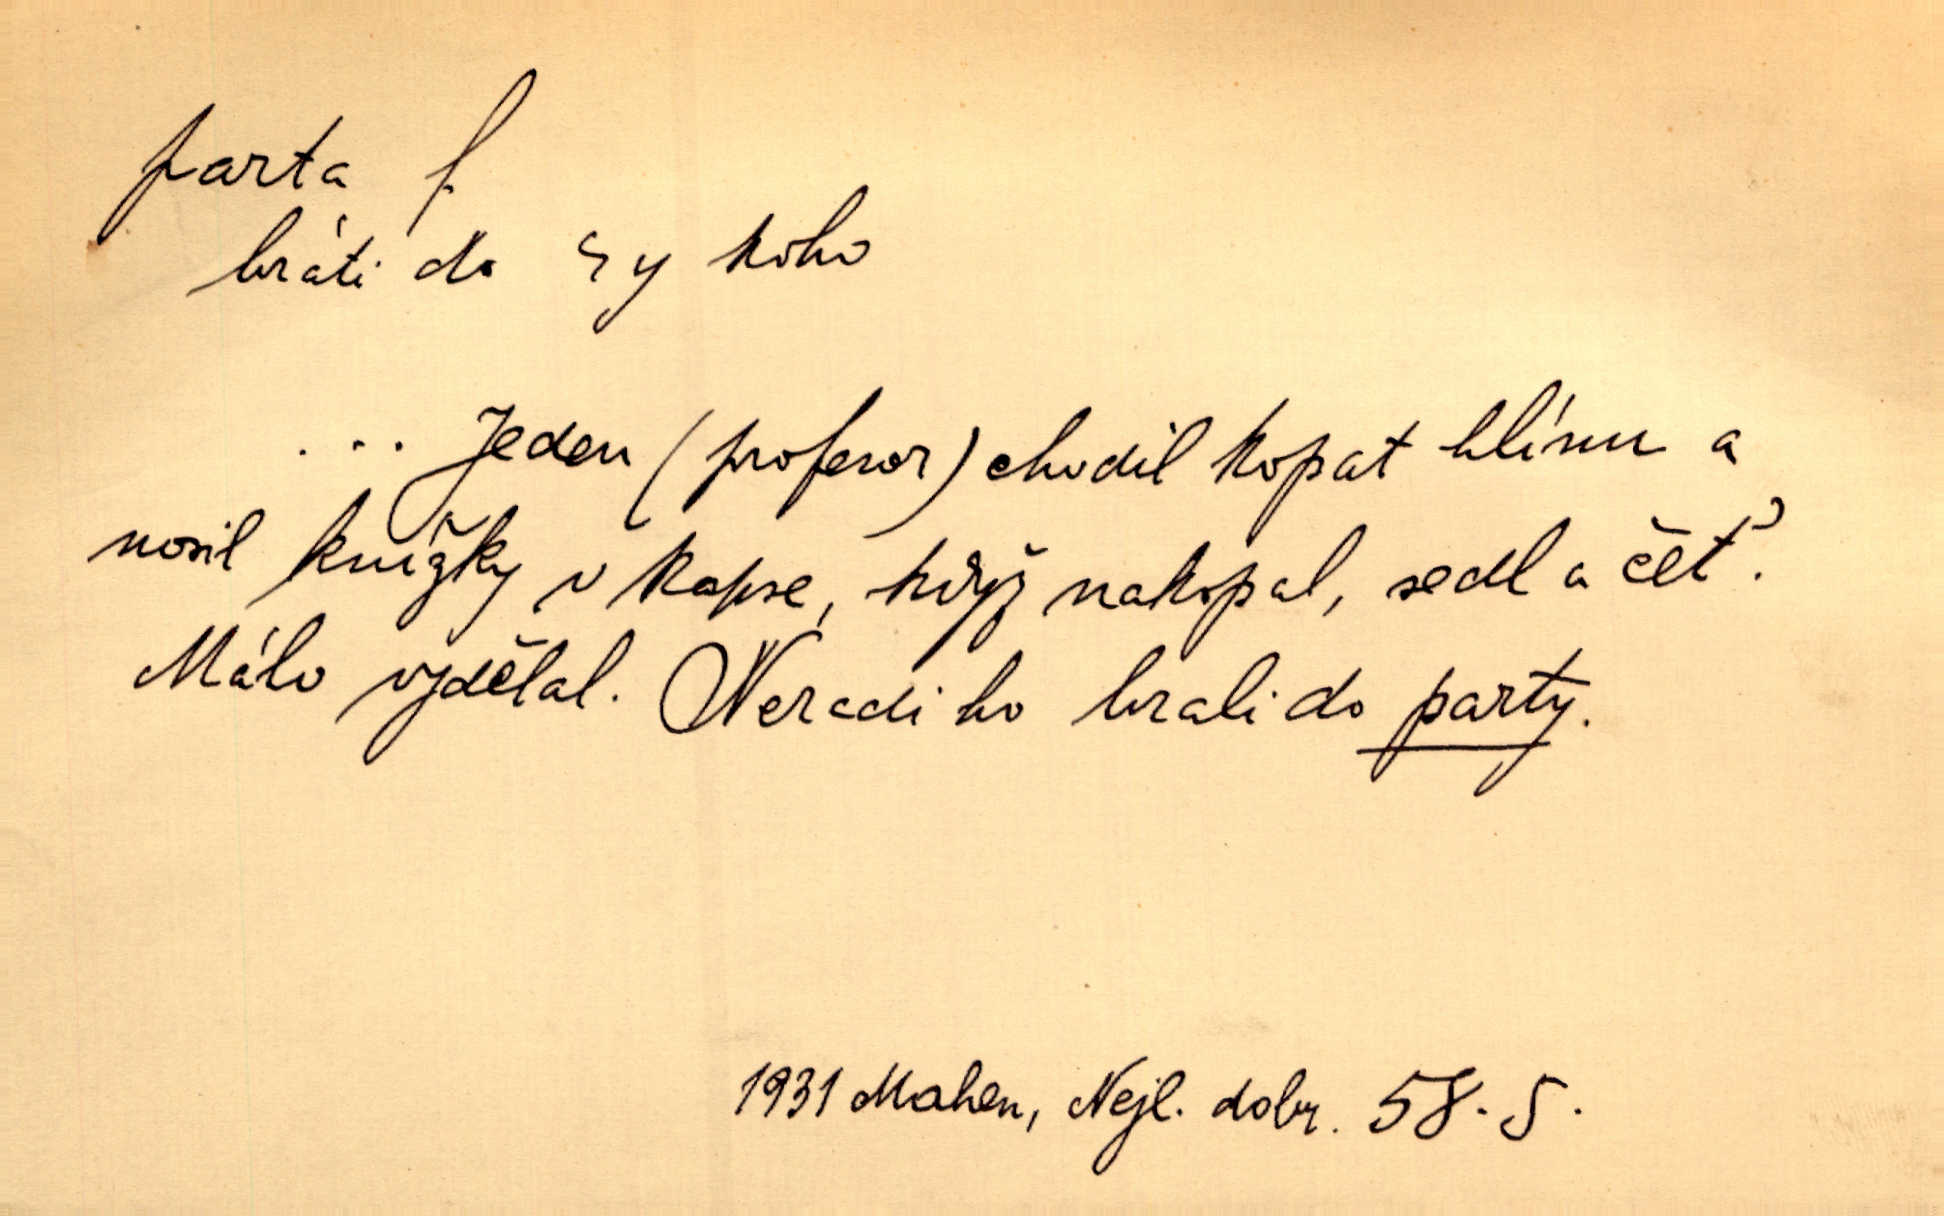 parta f.
bráti do ~y koho
... Jeden (profesor) chodil kopat hlínu a
nosil knížky v kapse, když nakopal, sedl a čet'.
Málo vydělal. Neradi ho brali do party.
1931 Mahen, Nejl. dobr. 58. S.